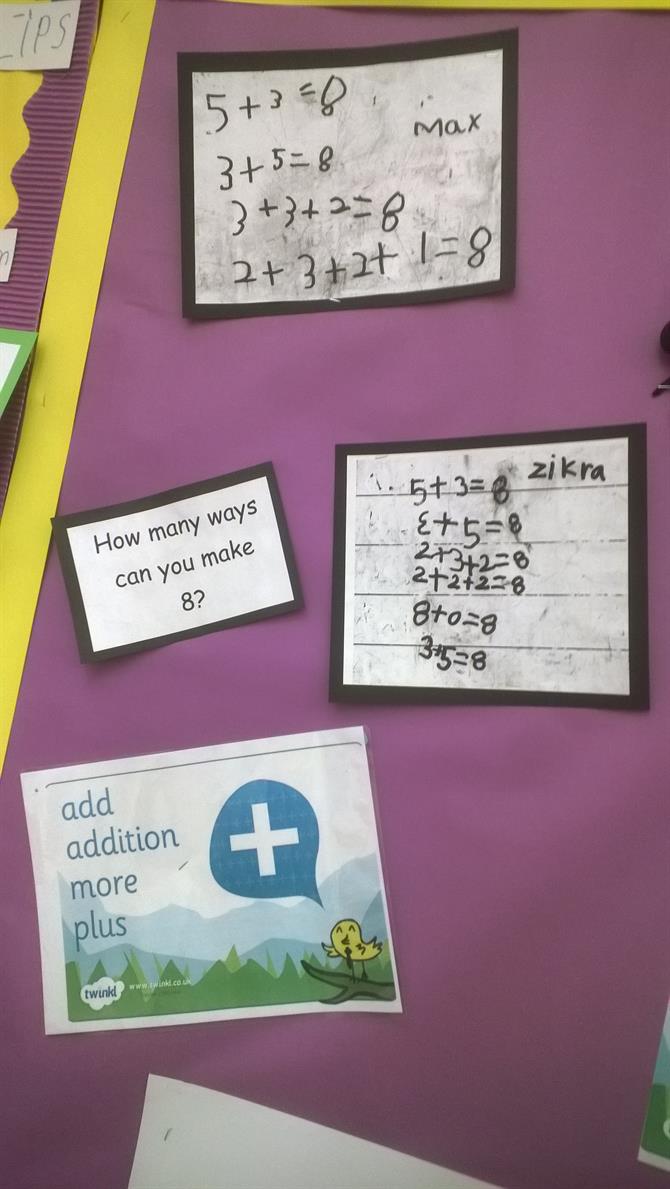 ZIPS
5+3=8
Max
3+5=8
3+3+2=8
2+3+2+1=8
zikra
5+3=8
3+5=8
2+3+2=8
2+2+2=8
8+0=8
3+5=8
How many ways
can you make
8?
add
addition
more
plus
twinkl
www.twinkl.co.uk